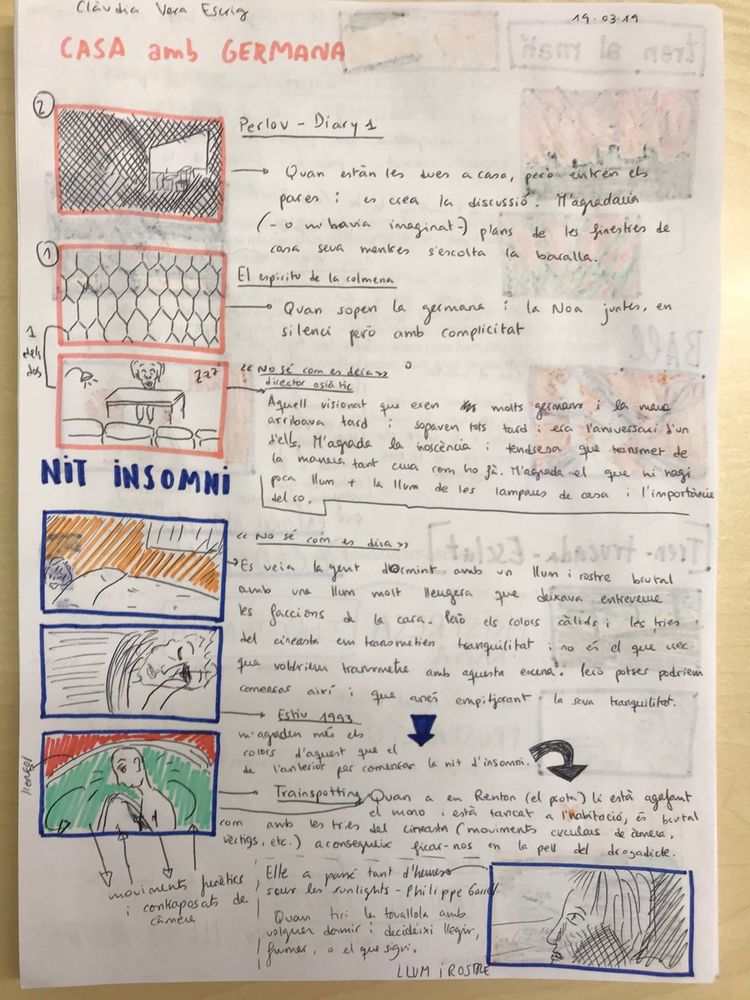 Clàudia Vera Escrig
19-03-19
CASA amb GERMANA
tren al matí
2
Perlov - Diary 1
Quan estàn les dues a casa, però entren els
pares i es crea la discussió. M'agradaria
(- o m'havia imaginat -) plans de les finestres de
casa seva mentres s'escolta la baralla.
1
El espíritu de la colmena
Quan sopen la germana i la Noa juntes, en
silenci però amb complicitat
1
dels
dos
zzz
<< No sé com es deia >>
director asiàtic
Aquell visionat que eren molts germans i la mare
arribava tard i sopaven tots tard i era l'aniversari d'un
d'ells. M'agrada la inocència i tendresa que transmet de
la manera tant crua com ho fà. M'agrada el que hi hagi
poca llum + la llum de les lampares de casa i l'importància
del so.
BALL
NIT INSOMNI
<< No sé com es deia >>
Es veia la gent dormint amb un llum i rostre brutal
amb una llum molt lleugera que deixava entreveure
les faccions de la cara. Però els colors càlids i les tries
del cineasta em transmetien tranquilitat i no és el que crec
que voldriem transmetre amb aquesta escena. Però potser podriem
començar així i que anés empitjorant la seva tranquilitat.
Tren-trucada-Esclat
Estiu 1993
m'agraden més els
colors d'aquest que el
de l'anterior per començar la nit d'insomni.
Trainspotting
Quan a en Renton (el prota) li està agafant
el mono i està tancat a l'habitació, és brutal
com amb les tries del cineasta (moviments circulars de càmera,
vèrtigs, etc.) aconsegueix ficar-nos en la pell del drogadicte.
moviments frenètics
i contraposats de
càmera
Elle a passé tant d'heures
sous les sunlights - Philippe Garrel
Quan tiri la tovallola amb
volguer dormir i decideixi llegir,
fumar, o el que sigui.
LLUM i ROSTRE